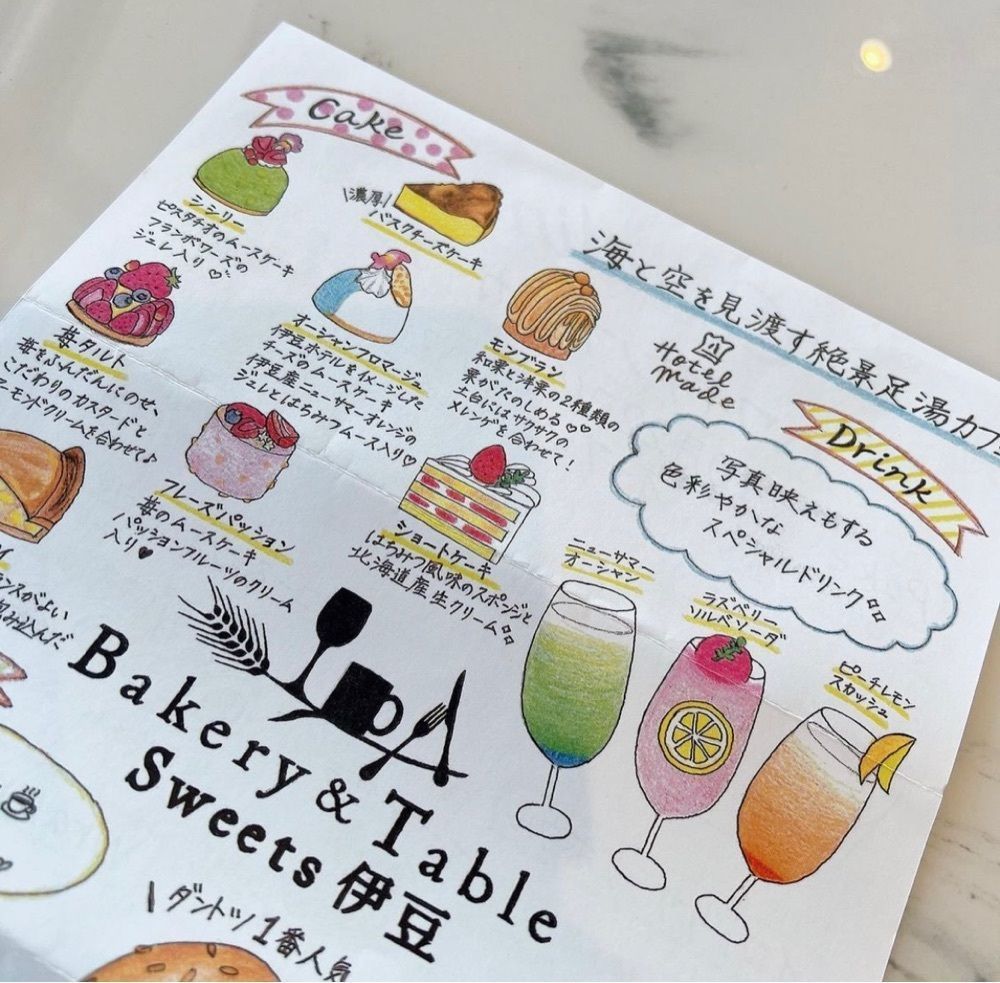 Cake
シシリー
ピスタチオのムースケーキ
フランボワーズの
ジュレ入り♡
\濃厚/
バスクチーズケーキ
苺タルト
苺をふんだんにのせ、
こだわりのカスタードと
モンドクリームを合わせて♪
オーシャンフロマージュ
伊豆ホテルをイメージした
チーズのムースケーキ
伊豆産ニューサマーオレンジの
ジュレとはちみつムース入り♡
モンブラン
和栗と洋栗の2種類の
栗がたのしめる♡♡
土台にはサクサクの
メレンゲを合わせて!
フレーズパッション
苺のムースケーキ
パッションフルーツのクリーム
入り♥
ショートケーキ
はちみつ風味のスポンジと
北海道産生クリーム
ンスがよい
包み込んだ
海と空を見渡す絶景足湯カフェ
Hotel
made
Drink
写真映えもする
色彩やかな
スペシャルドリンク
ニューサマー
オーシャン
ラズベリー
ソルベソーダ
ピーチレモン
スカッシュ
Bakery & Table
Sweets 伊豆
\ダントツ1番人気